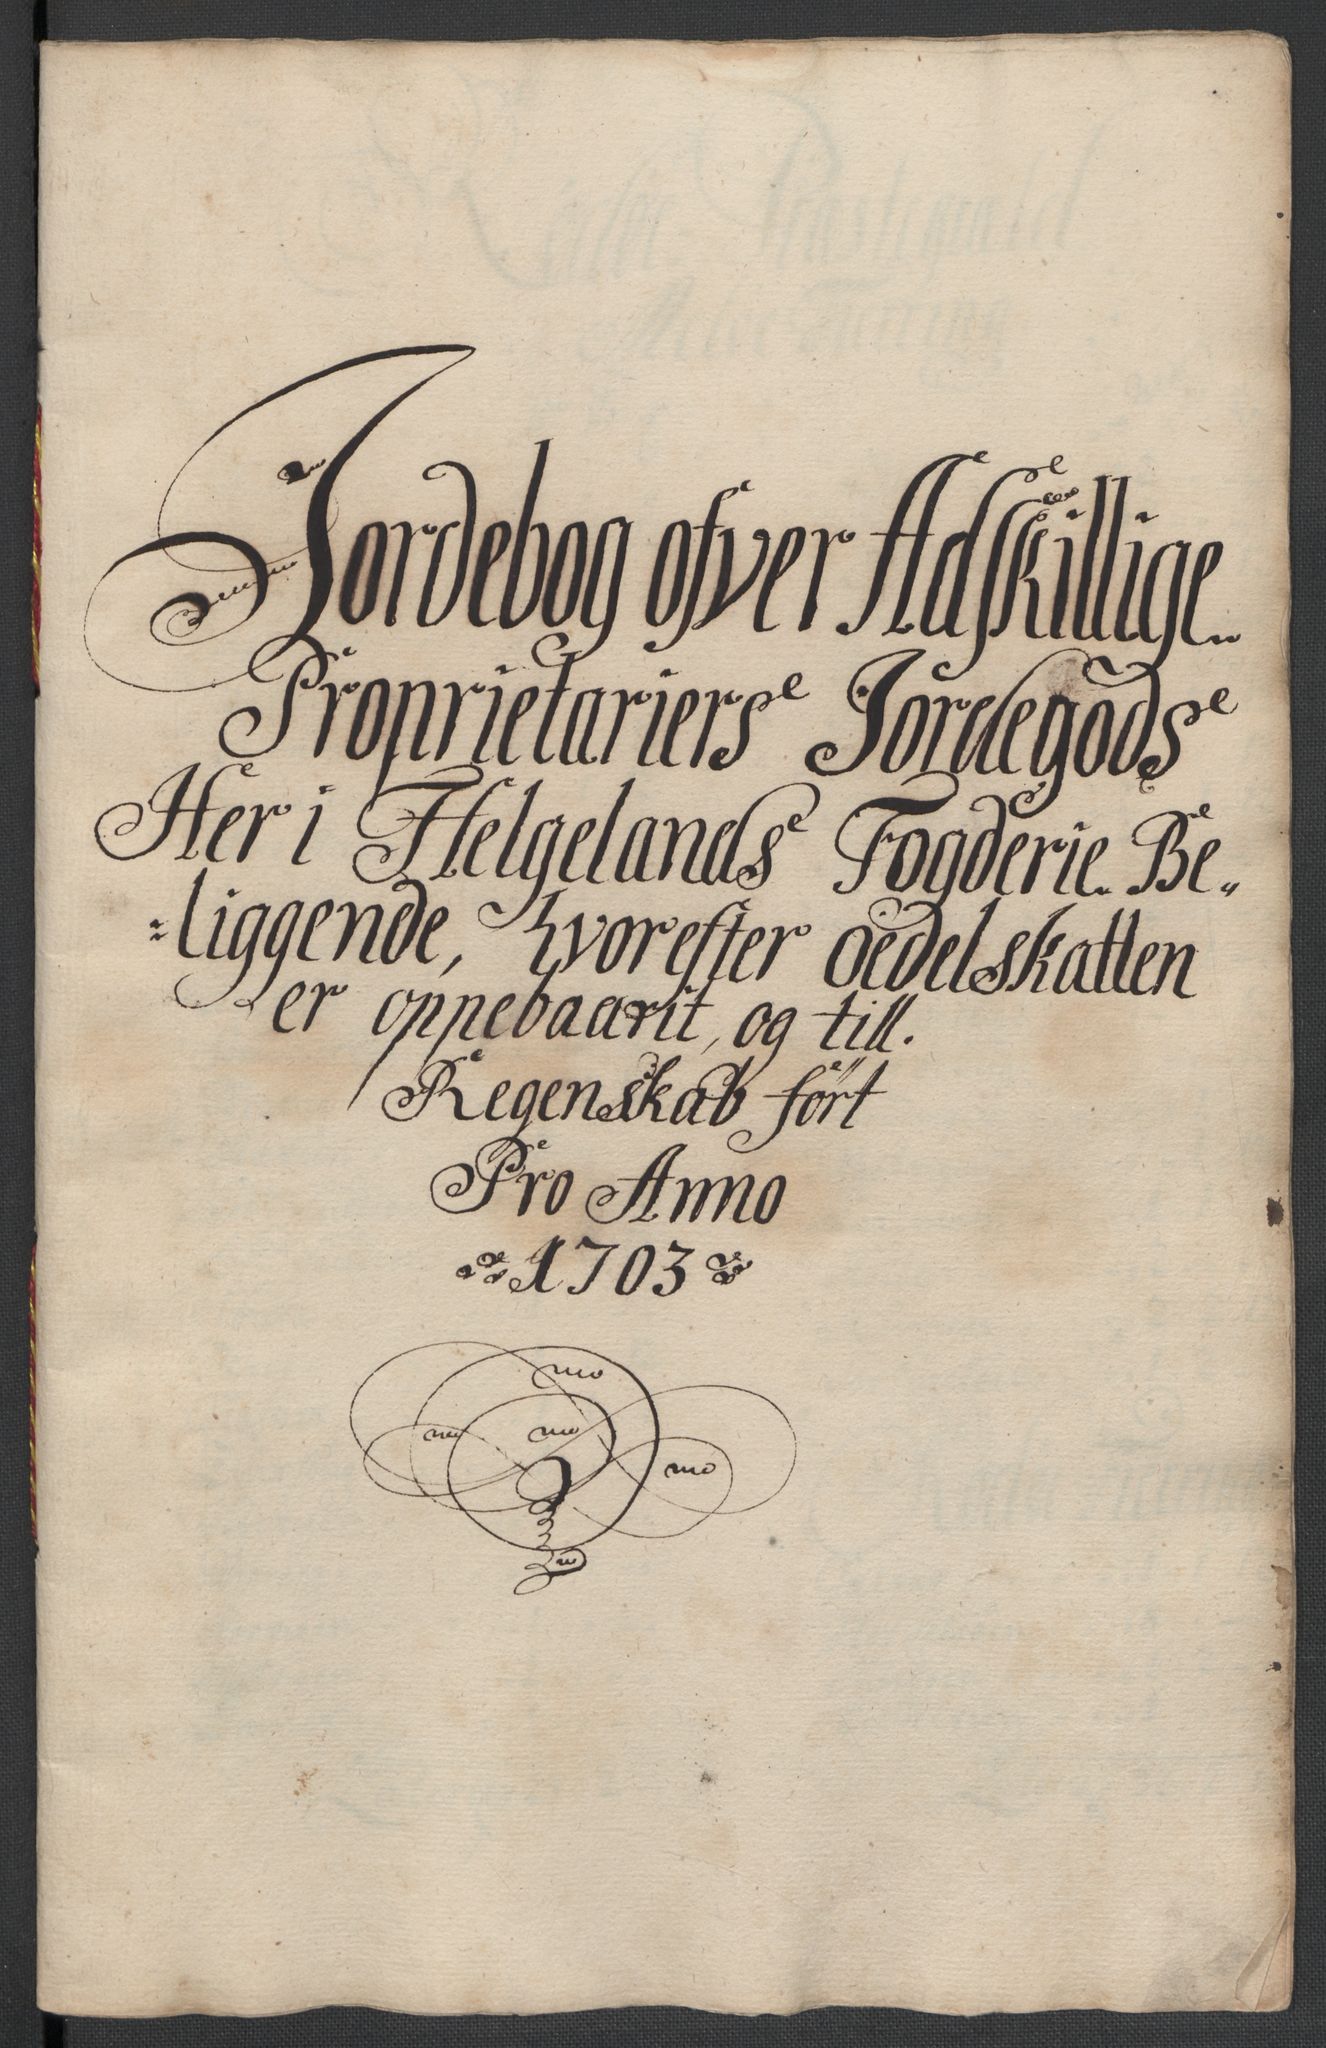 Jordebog ofver Adskillige
Proprietariers Jordegods
Her i Helgelands Fogderie Be„
„liggende, hvorefter oedelskatten
er oppebaarit, og till.
Regenskab fört
Pro Anno
1703